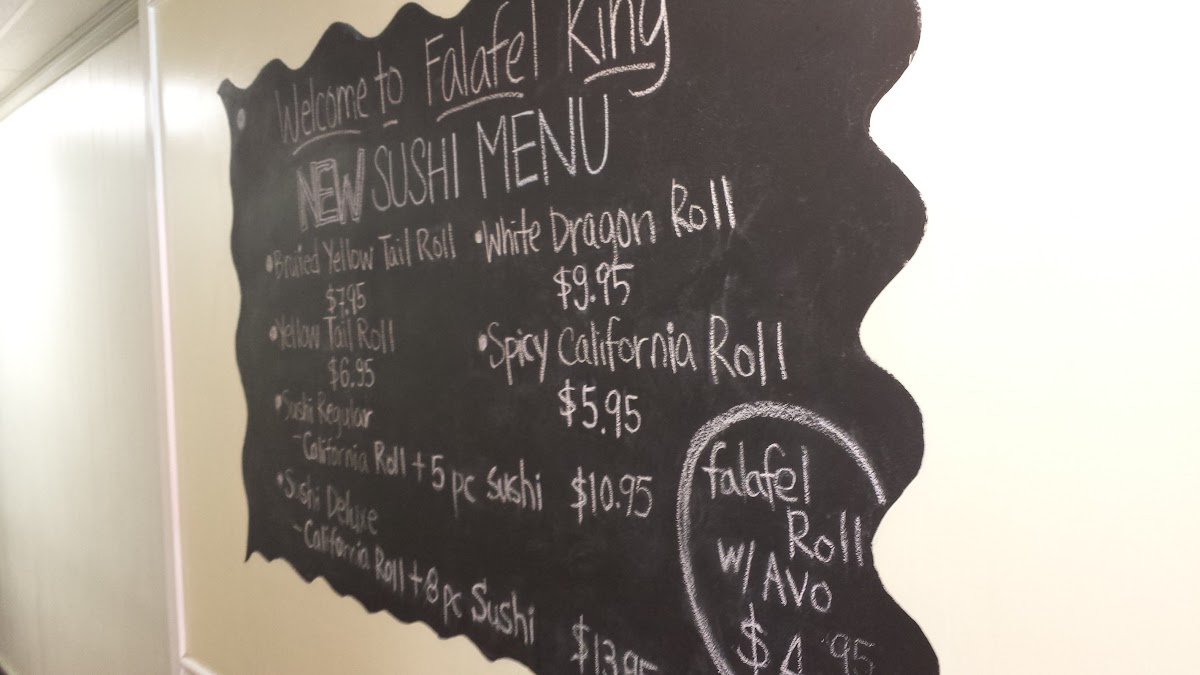 Welcome to Falafel King
NEW SUSHI MENU
•Bruled Yellow Tail Roll
$7.95
•Yellow Tail Roll
$6.95
•White Dragon Roll
$9.95
•Spicy California Roll
$5.95
•Sushi Regular
-California Roll + 5 pc Sushi $10.95
•Sushi Deluxe
-California Roll + 8 pc Sushi $13.95
falafel
Roll
w/ AVO
$4.95